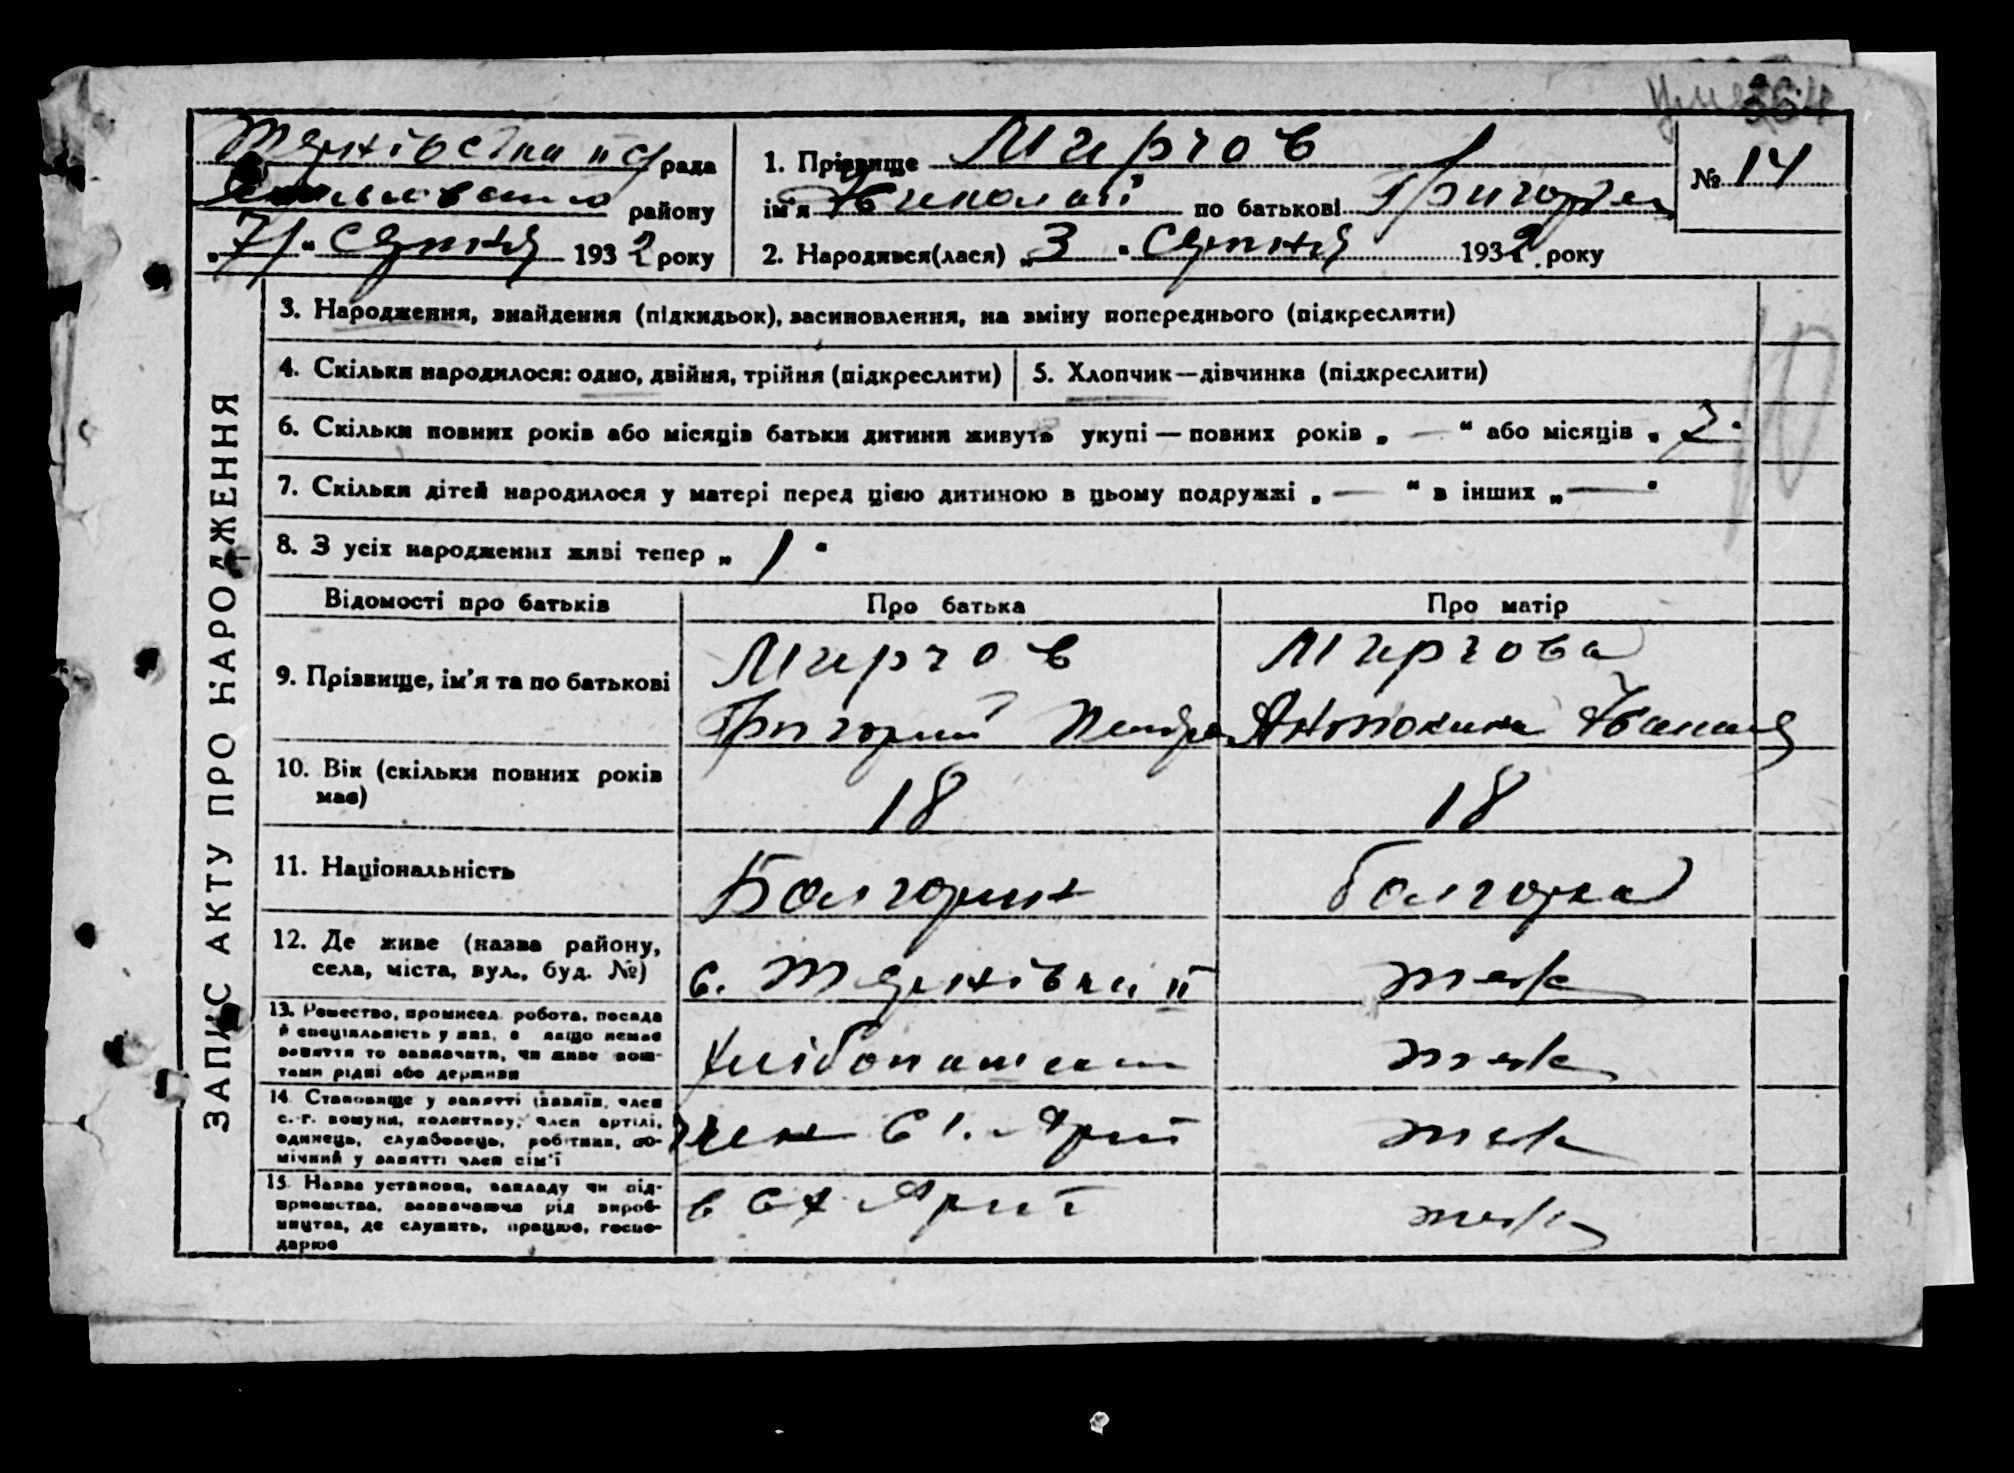 Тернівська II с/рада
району
"7" серпня 1932 року
1. Прізвище Мирчов
ім'я Николай по батькові Григорієв
2. Народився(лася) „3" серпня 1932 року
№ 14
ЗАПИС АКТУ ПРО НАРОДЖЕННЯ
3. Народження, знайдення (підкидьок), засиновлення, на зміну попереднього (підкреслити)
4. Скільки народилося: одно, двійня, трійня (підкреслити)
5. Хлопчик—дівчинка (підкреслити)
6. Скільки повних років або місяців батьки дитини живуть укупі — повних років „—" або місяців „2"
7. Скільки дітей народилося у матері перед цією дитиною в цьому подружжі „—" в інших „—"
8. З усіх народжених живі тепер „1"
Відомості про батьків
Про батька
Про матір
9. Прізвище, ім'я та по батькові
Мирчов
Григорий Петров
Мирчова
Антонина Ивановна
10. Вік (скільки повних років
має)
18
18
11. Національність
Болгорин
болгорка
12. Де живе (назва району,
села, міста, вул., буд. №)
с. Тернівка II
теж
13. Ремество, промисел, робота, посада
й спеціяльність у них, а якщо немає
заняття то зазначити, чи живе кош-
тами рідні або держави
хлібопашец
теж
14. Становище у занятті (хазяїн, член
с.-г. комуни, колективу, член артілі,
одинець, службовець, робітник, по-
мічний у занятті член сім'ї
член
теж
15. Назва установи, закладу чи під-
приємства, зазначаючи рід вироб-
ництва, де служить, працює, госпо-
дарює
в
теж